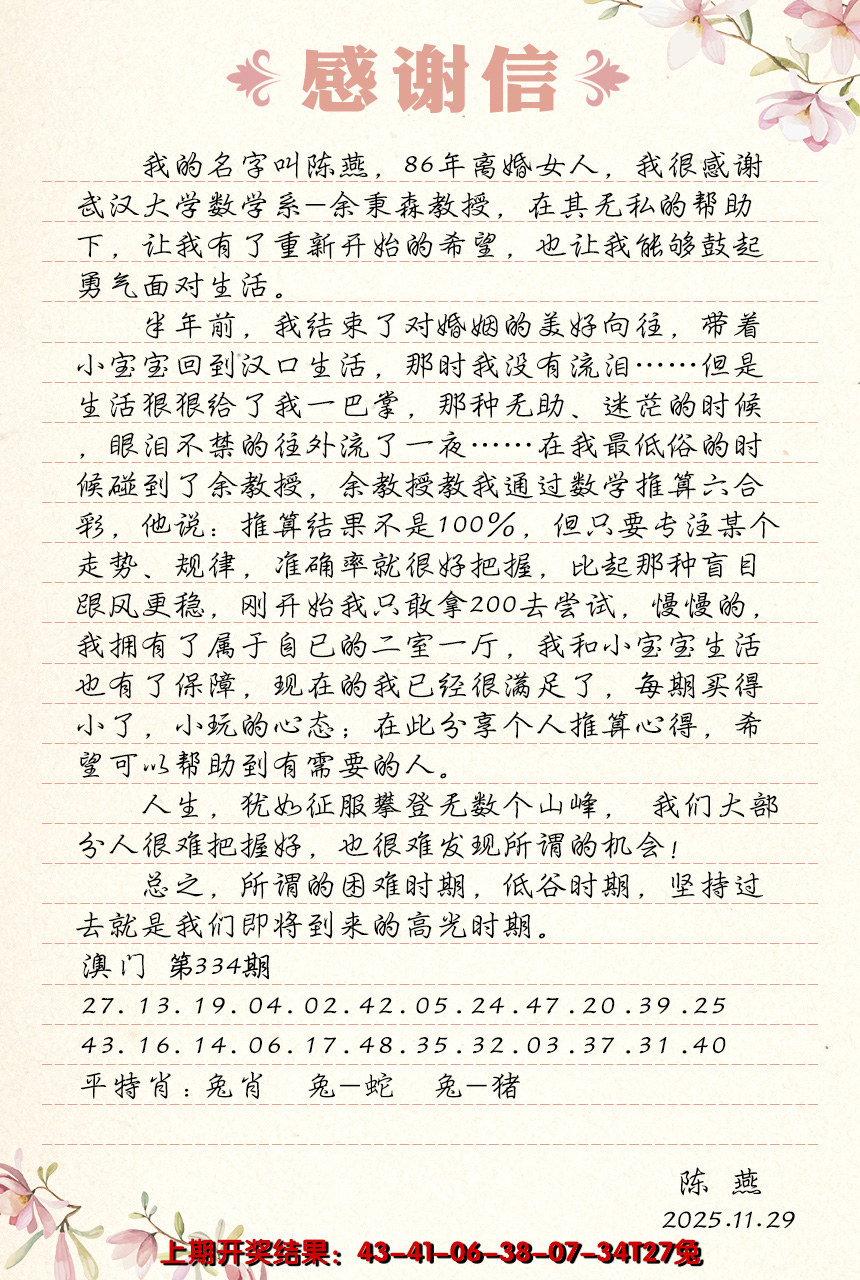 感谢信
我的名字叫陈燕，86年离婚女人，我很感谢
武汉大学数学系—余秉森教授，在其无私的帮助
下，让我有了重新开始的希望，也让我能够鼓起
勇气面对生活。
半年前，我结束了对婚姻的美好向往，带着
小宝宝回到汉口生活，那时我没有流泪……但是
生活狠狠给了我一巴掌，那种无助、迷茫的时候
，眼泪不禁的往外流了一夜……在我最低俗的时
候碰到了余教授，余教授教我通过数学推算六合
彩，他说：推算结果不是100%，但只要专注某个
走势、规律，准确率就很好把握，比起那种盲目
跟风更稳，刚开始我只敢拿200去尝试，慢慢的，
我拥有了属于自己的二室一厅，我和小宝宝生活
也有了保障，现在的我已经很满足了，每期买得
小了，小玩的心态；在此分享个人推算心得，希
望可以帮助到有需要的人。
人生，犹如征服攀登无数个山峰， 我们大部
分人很难把握好，也很难发现所谓的机会！
总之，所谓的困难时期，低谷时期，坚持过
去就是我们即将到来的高光时期。
澳门 第334期
27.13.19.04.02.42.05.24.47.20.39.25
43.16.14.06.17.48.35.32.03.37.31.40
平特肖：兔肖 兔—蛇 兔—猪
陈 燕
2025.11.29
上期开奖结果：43-41-06-38-07-34T27兔